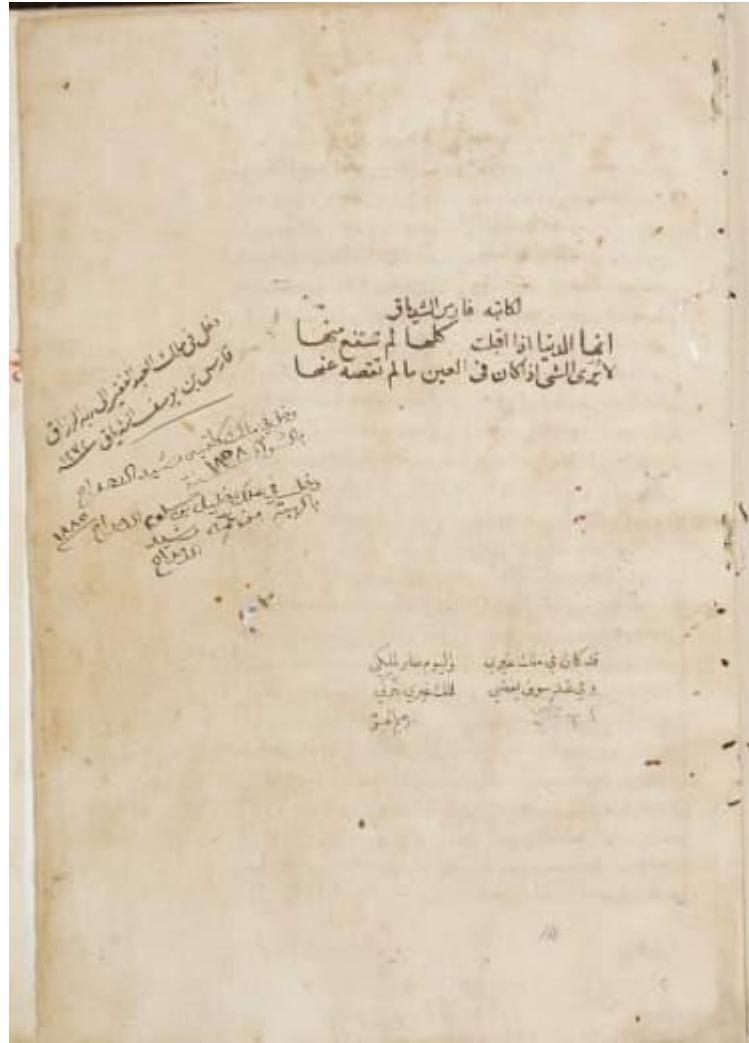 لكاتبه فارس الشدياق
انما الدنيا اذا اقبلت كلها لم تنتفع منها
لا يرى الشى اذا كان فى العين ما لم تقصه عنها
دخل فى ملك العبد الفقير الى ربه الرزاق
فارس بن يوسف الشدياق سنة ١٢٧٤
دخل في ملك كاتبه رشيد الدحداح
١٨٥٨
دخل في ملك خليل بن سلوم الدحداح ١٨٨٥
من رشيد
الدحداح
قد كان في ملك غيري واليوم صار بملكي
وفي غد سوف يمضي لملك غيري